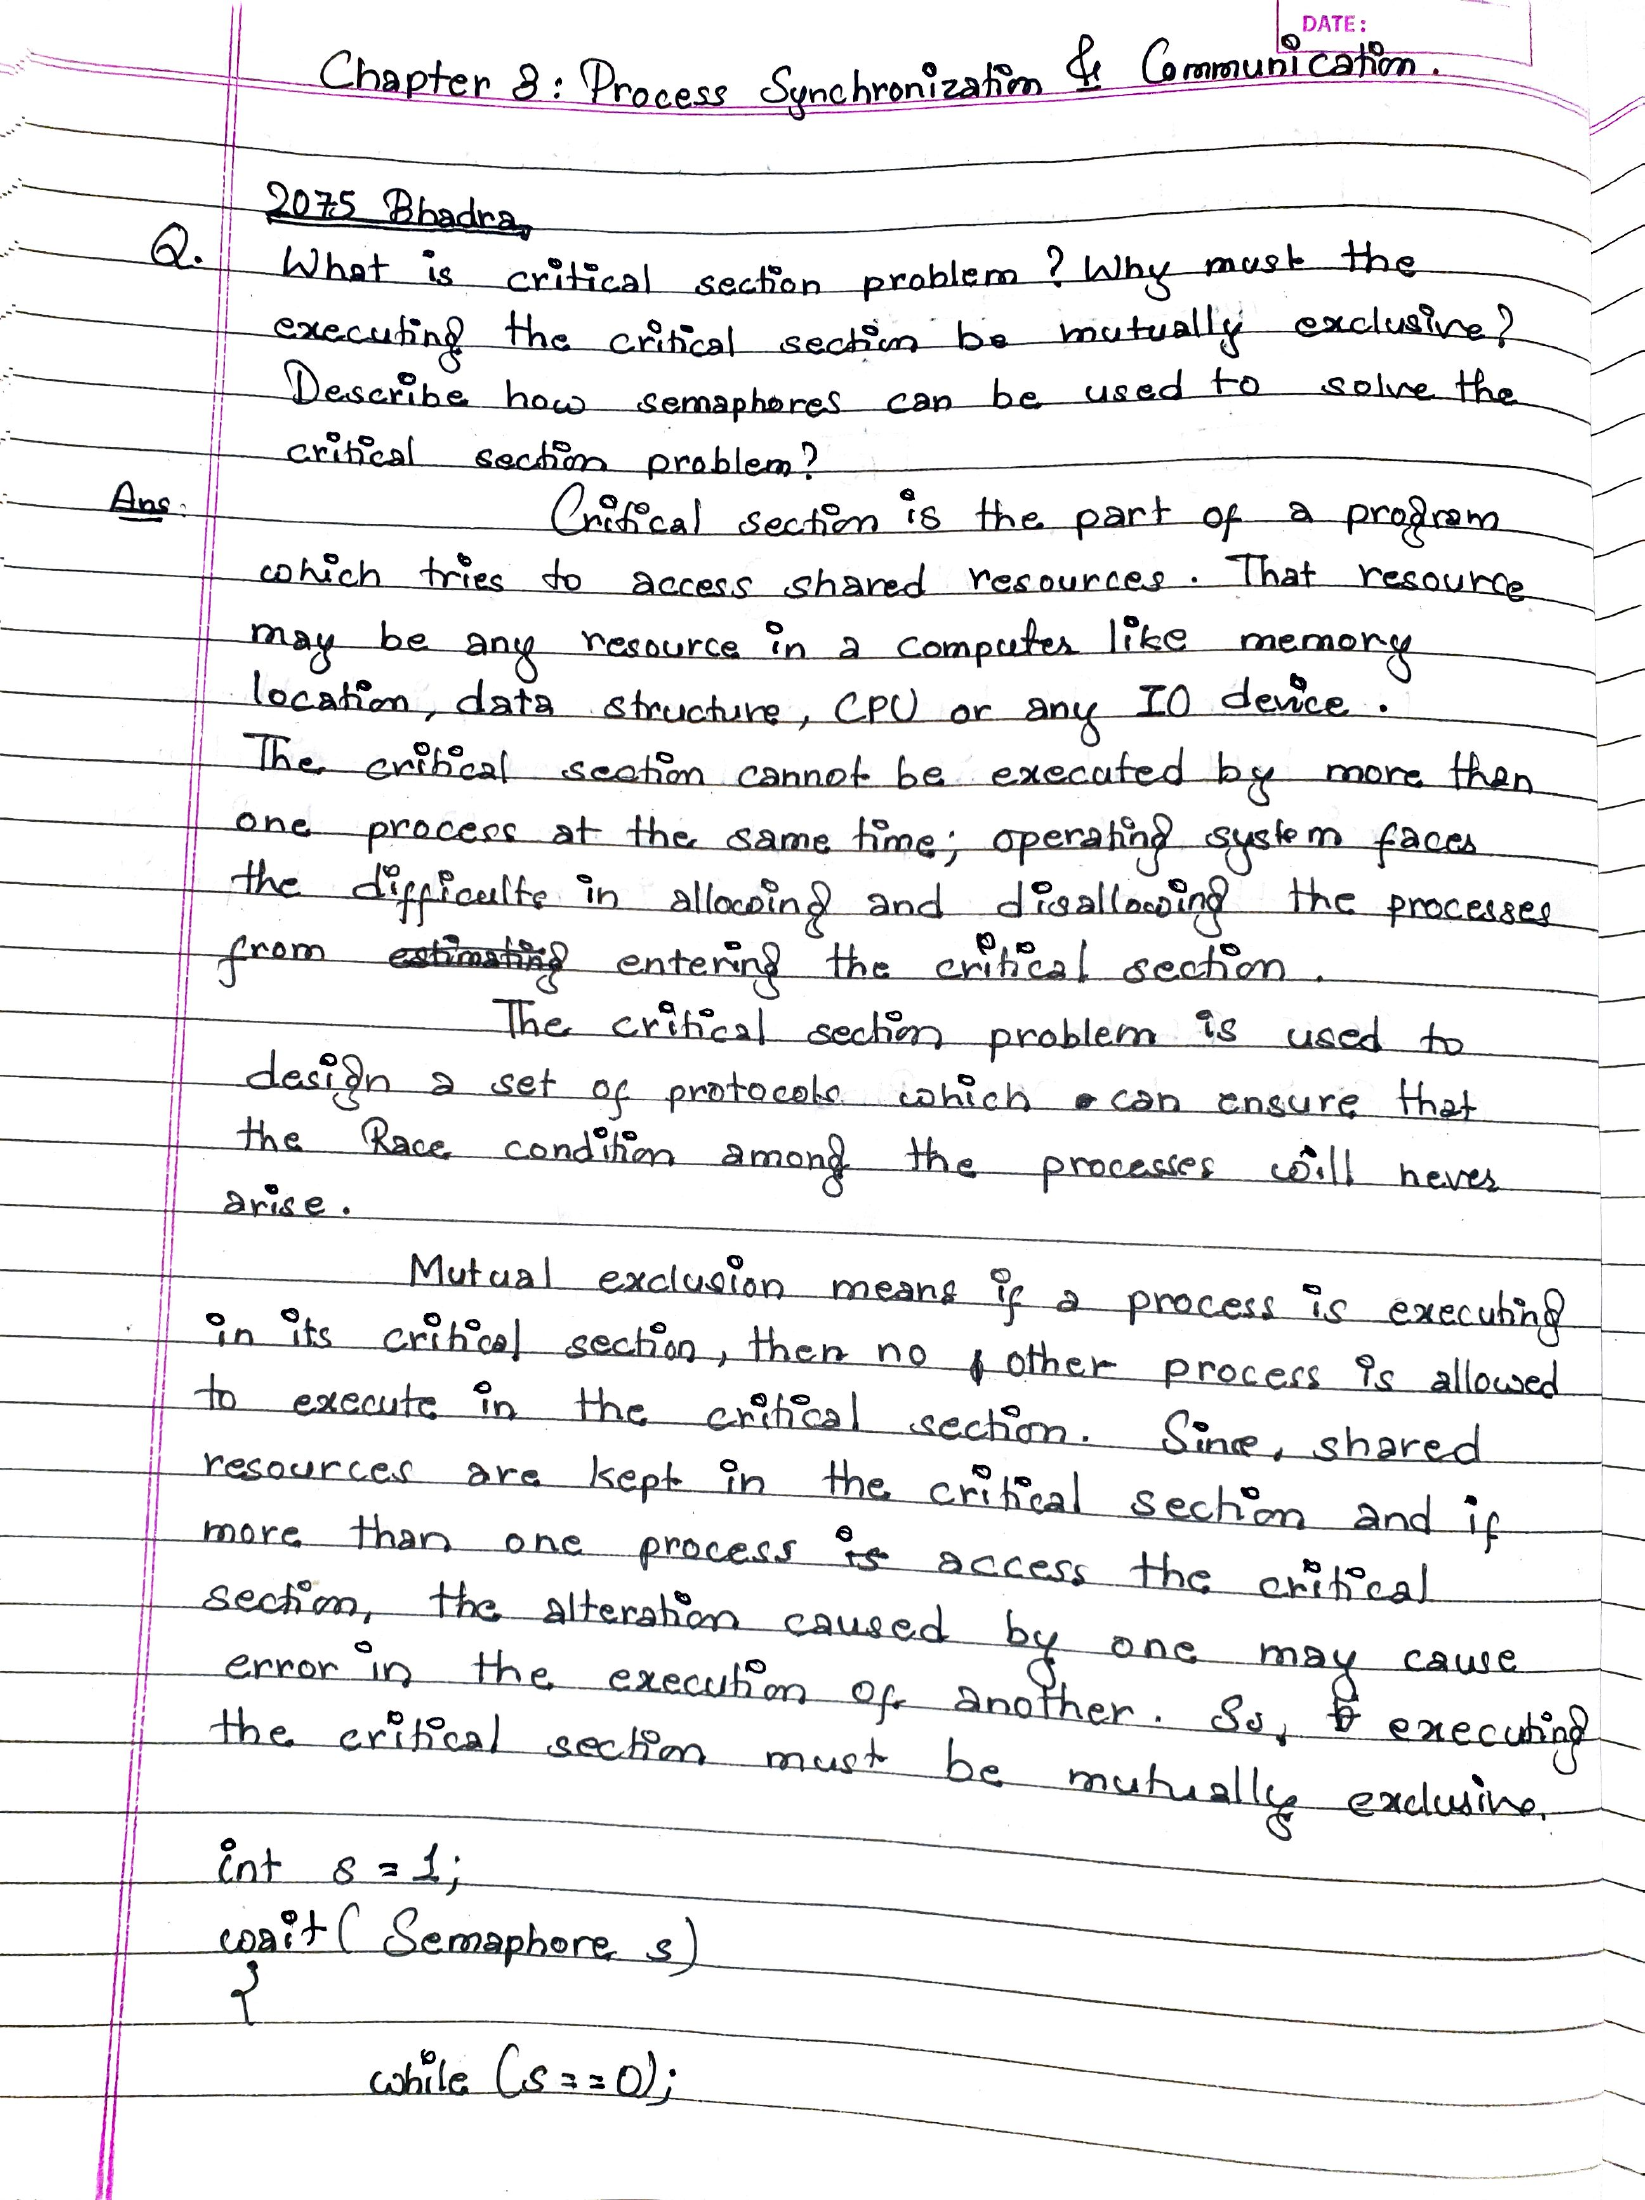 DATE:
Chapter 8: Process Synchronization & Communication.
2075 Bhadra
Q. What is critical section problem? Why must the
executing the critical section be mutually exclusive?
Describe how semaphores can be used to solve the
critical section problem?
Ans: Critical section is the part of a program
which tries to access shared resources. That resource
may be any resource in a computer like memory
location, data structure, CPU or any IO device.
The critical section cannot be executed by more than
one process at the same time; operating system faces
the difficults in allowing and disallowing the processes
from estimating entering the critical section.
The critical section problem is used to
design a set of protocols which can ensure that
the Race condition among the processes will never
arise.
Mutual exclusion means if a process is executing
in its critical section, then no other process is allowed
to execute in the critical section. Since, shared
resources are kept in the critical section and if
more than one process is access the critical
section, the alteration caused by one may cause
error in the execution of another. So, executing
the critical section must be mutually exclusive.
int s = 1;
wait( Semaphore s)
{
while (s==0);